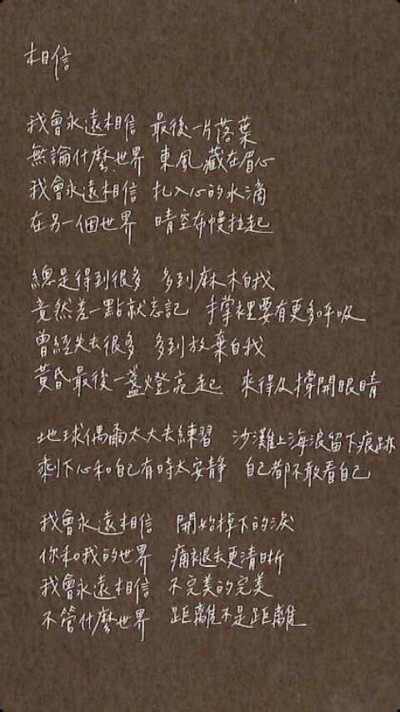 相信
我會永遠相信 最後一片落葉
無論什麼世界 東風藏在眉心
我會永遠相信 扎入心的水滴
在另一個世界 晴空布幔挂起
總是得到很多 多到麻木自我
竟然差一點就忘記 掌裡要有更多呼吸
曾經失去很多 多到放棄自我
黃昏最後一盞燈亮起 來得及撐開眼睛
地球偶爾太大去練習 沙灘上海浪留下痕跡
剩下心和自己有時太安靜 自己都不敢看自己
我會永遠相信 開始掉下的淚
你和我的世界 痛褪去更清晰
我會永遠相信 不完美的完美
不管什麼世界 距離不是距離